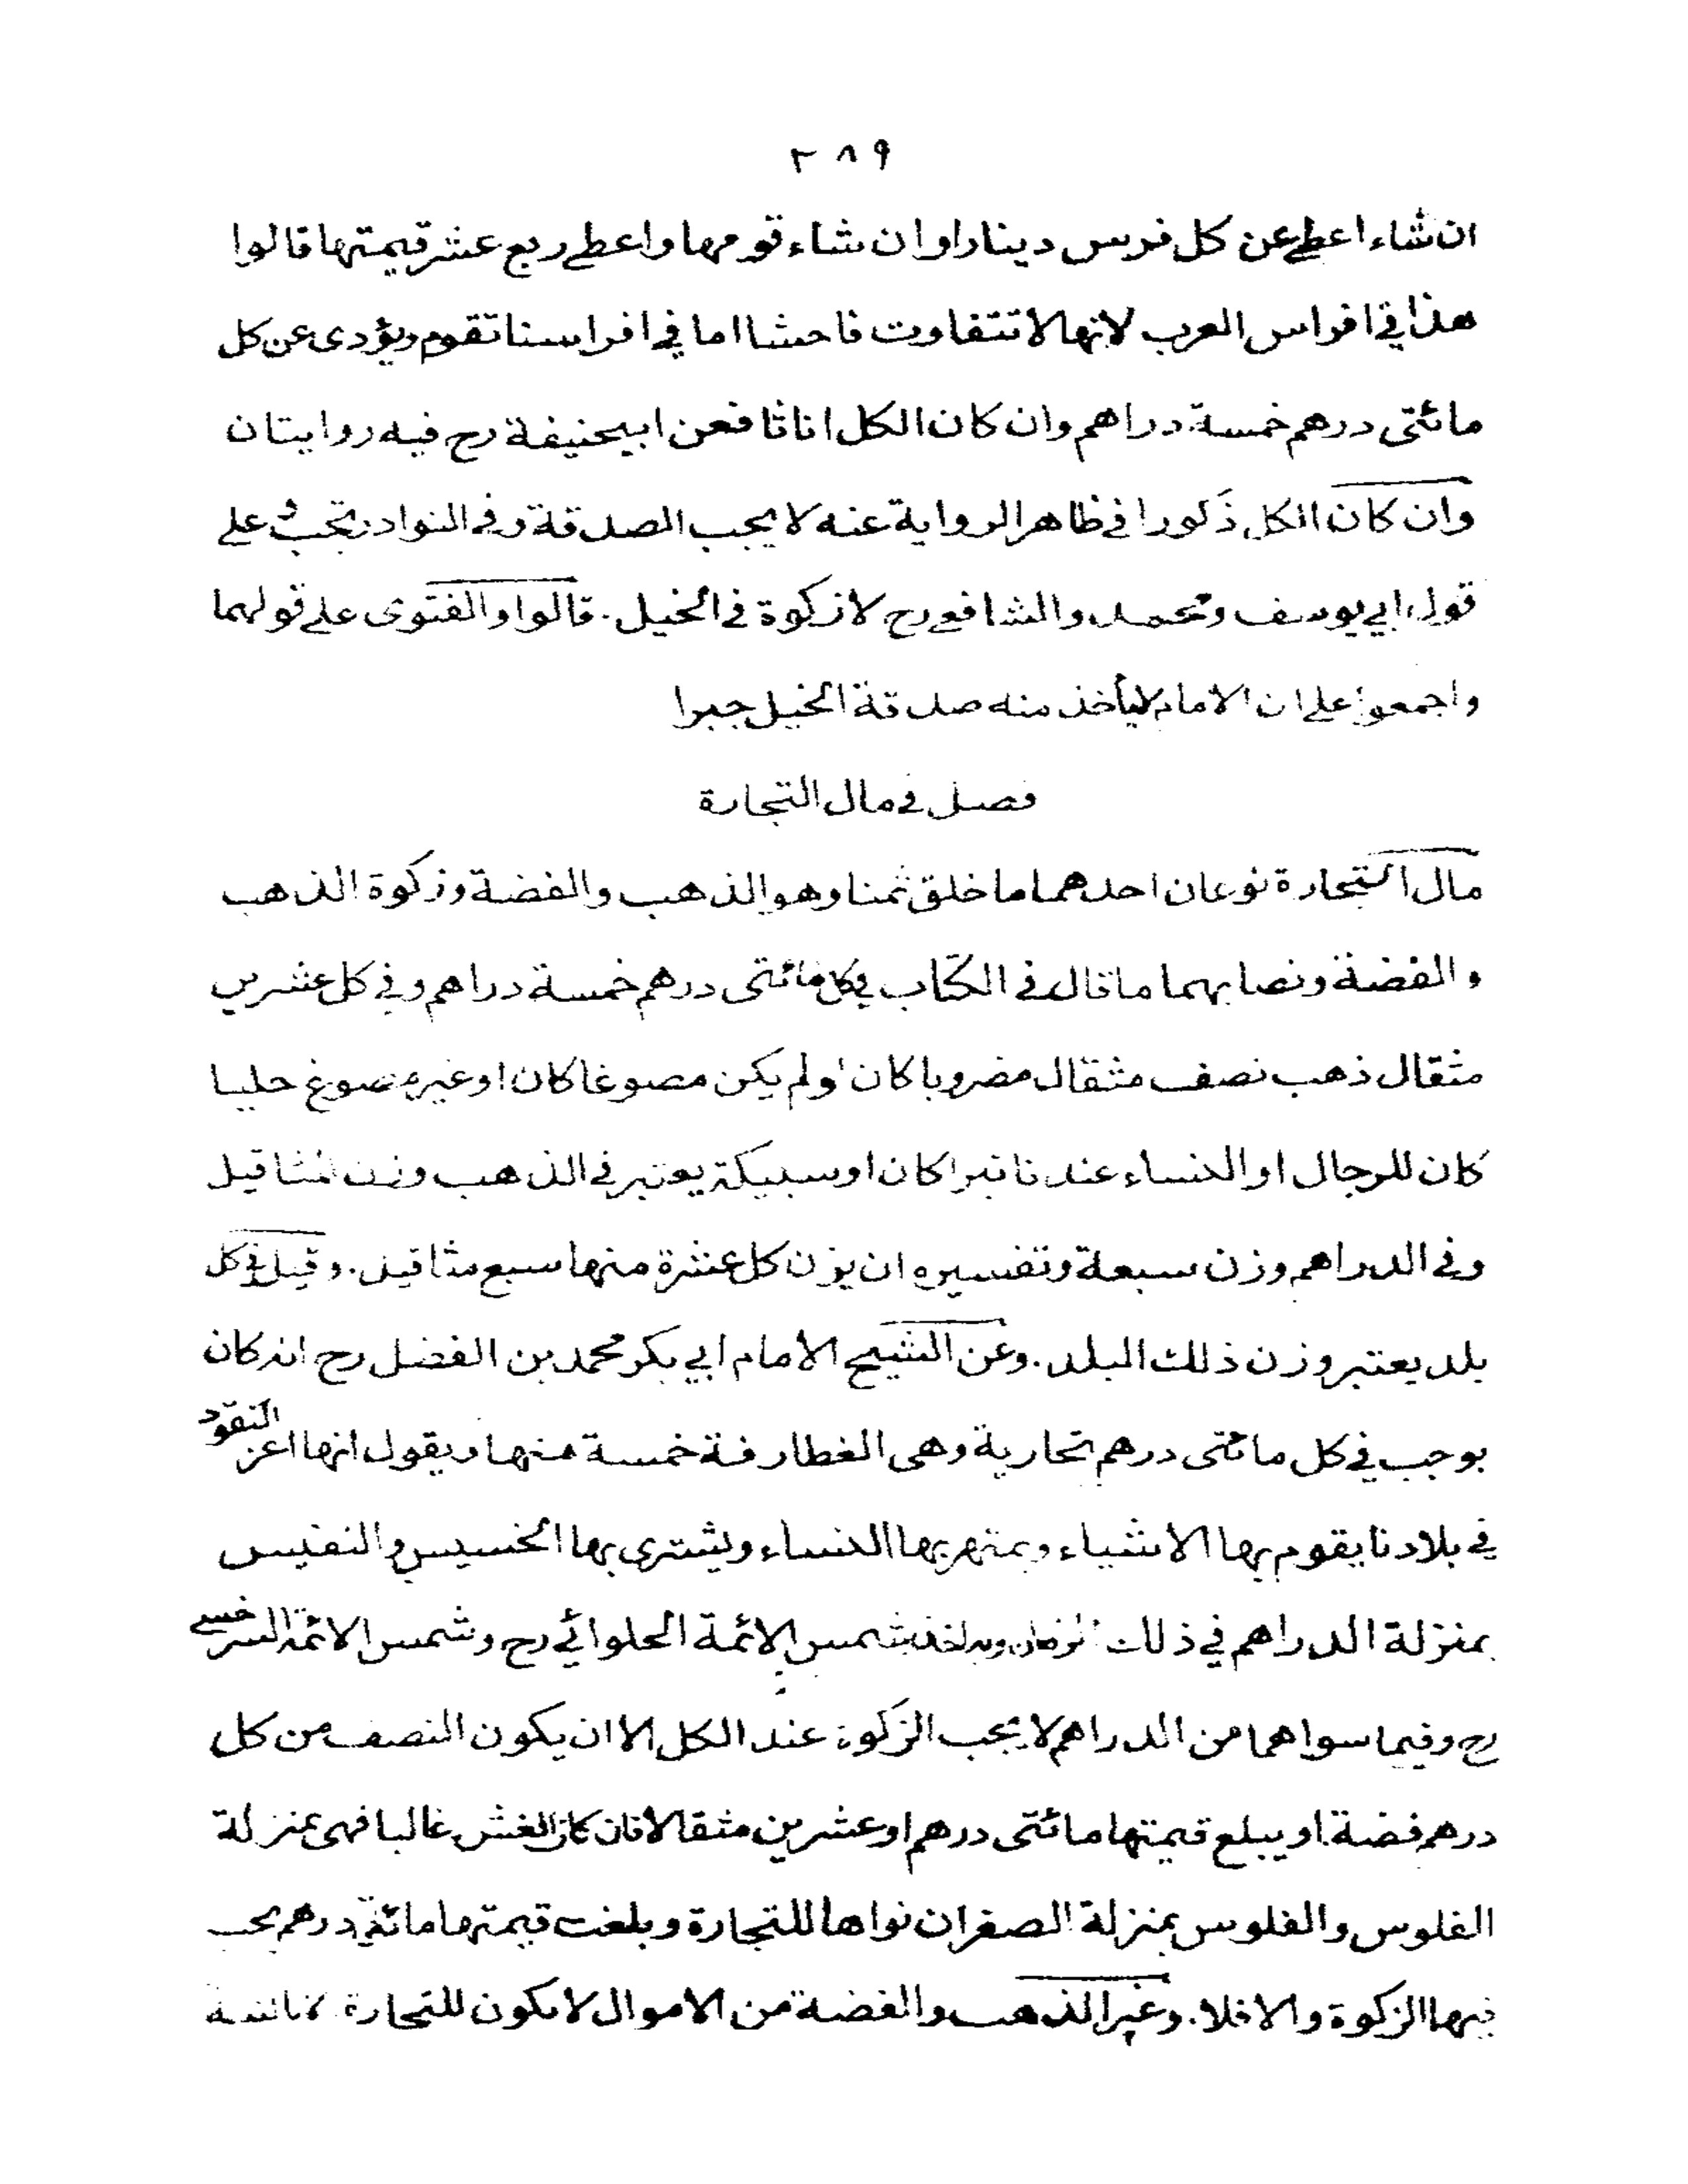 ٢٨٩
ان شاء اعطى عن كل فرس دينارا وان شاء قومها واعطى ربع عشر قيمتها قالوا
هذا في افراس العرب لانها لا تتفاوت فاحشا اما في افراسنا تقوم ويؤدى عن كل
مائتى درهم خمسة دراهم وان كان الكل اناثا فعن ابيحنيفة رح فيه روايتان
وان كان الكل ذكورا في ظاهر الرواية عنه لا يجب الصدقة وفي النوادر تجب و على
قول ابي يوسف ومحمد والشافعي رح لا زكوة في الخيل. قالوا والفتوى على قولهما
واجمعوا على ان الامام لا يأخذ منه صدقة الخيل جبرا
فصل في مال التجارة
مال التجارة نوعان احدهما ما خلق ثمنا وهو الذهب والفضة وزكوة الذهب
والفضة ونصابهما ما قال في الكتاب في كل مائتى درهم خمسة دراهم وفي كل عشرين
مثقال ذهب نصف مثقال مضروبا كان او لم يكن مصوغا كان او غير مصوغ حليا
كان للرجال او النساء عندنا تبرا كان او سبيكة يعتبر في الذهب وزن المثاقيل
وفي الدراهم وزن سبعة وتفسيره ان يزن كل عشرة منها سبع مثاقيل. وقيل في كل
بلد يعتبر وزن ذلك البلد. وعن الشيخ الامام ابي بكر محمد بن الفضل رح انه كان
يوجب في كل مائتى درهم بخارية وهى الغطارفة خمسة منها ويقول انها اعز النقود
في بلادنا يقوم بها الاشياء ويمتهر بها النساء ويشترى بها الخسيس والنفيس
بمنزلة الدراهم في ذلك الزمان وبه اخذ شمس الائمة الحلوائي رح وشمس الائمة السرخسي
رح وفيما سواهما من الدراهم لا يجب الزكوة عند الكل الا ان يكون النصف من كل
درهم فضة او يبلع قيمتها مائتى درهم او عشرين مثقالا فان كان الغش غالبا فهى بمنزلة
الفلوس والفلوس بمنزلة الصفر ان نواها للتجارة وبلغت قيمتها مائتي درهم يجب
فيها الزكوة والا فلا. وغير الذهب والفضة من الاموال لا يكون للتجارة